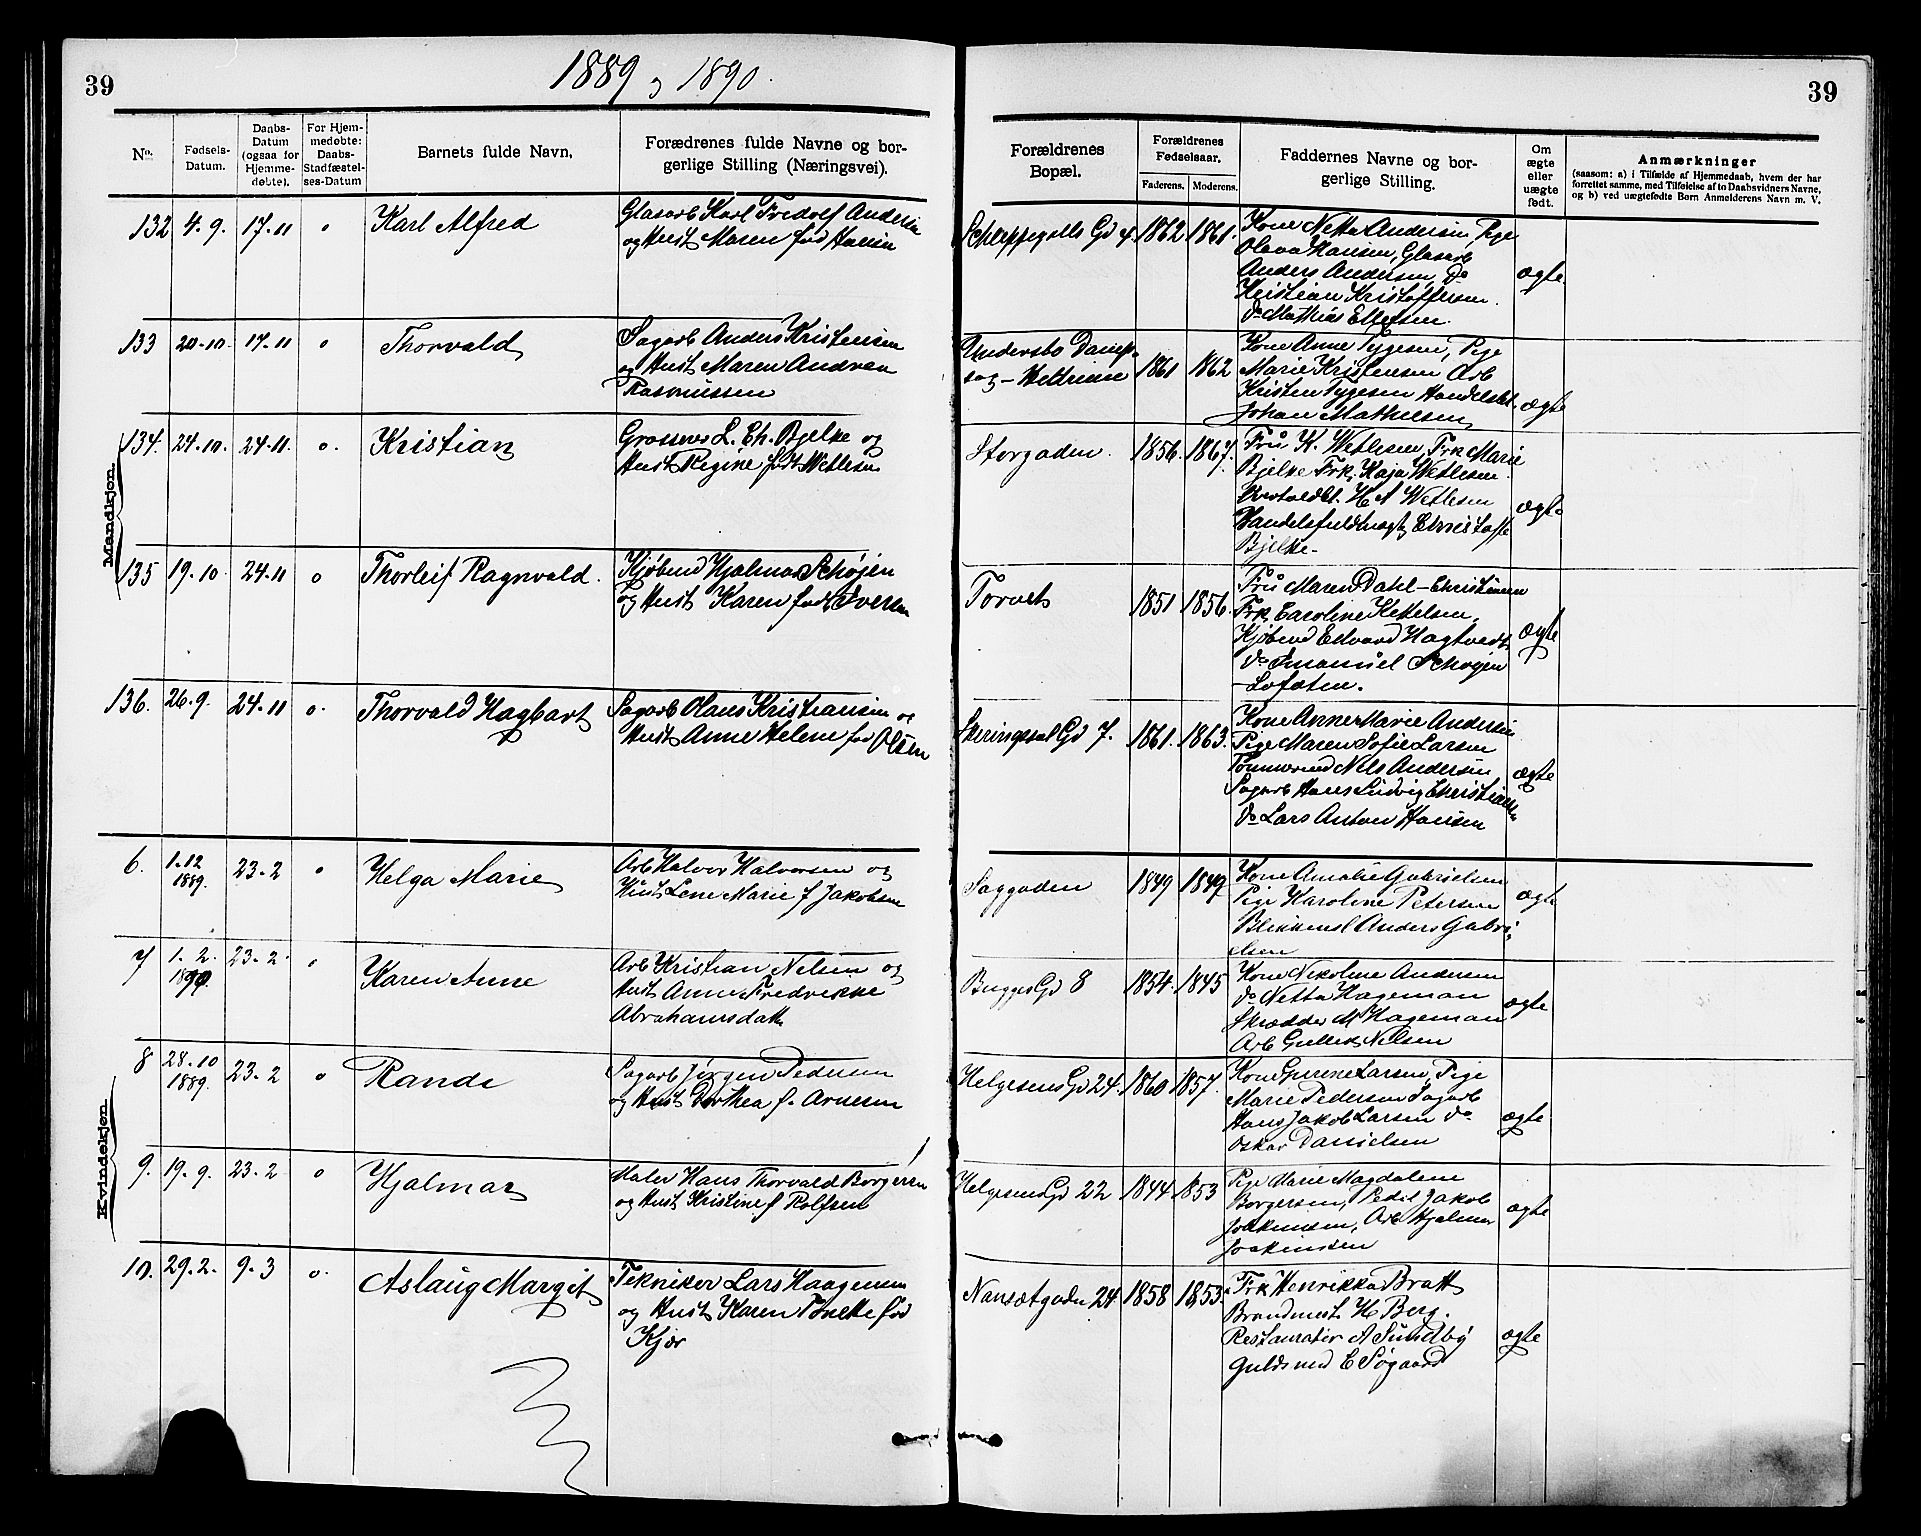 39
1889 og 1890.
39
No.
Fødsels-
Datum.
Daabs-
Datum
(ogsaa for
Hjemme-
døbte).
For Hjem-
medøbte:
Daabs-
Stadfæstel-
ses-Datum
Barnets fulde Navn.
Forældrenes fulde Navne og bor-
gerlige Stilling (Næringsvei).
Forældrenes
Bopæl.
Forældrenes
Fødselsaar.
Faderens.
Moderens.
Faddernes Navne og bor-
gerlige Stilling.
Om
ægte
eller
uægte
født.
Anmærkninger
(saasom: a) i Tilfælde af Hjemmedaab, hvem der har
forrettet samme, med Tilføielse af to Daabsvidners Navne,
og b) ved uægtefødte Børn Anmelderens Navn m. V.
Mandkjøn
132 4.9. 17.11 o Karl Alfred
Glasarb Karl Fredolf Andersen
og Hust Maren fød Hansen
Schleppegrells Gd 4 1862 1861.
Kone Netta Andersen, Pige
Olava Hansen, Glasarb
Anders Andersen, Do
Kristian Kristoffersen
Do Mathias Ellefsen.
ægte
133 20.10. 17.11 o Thorvald
Sagarb Anders Kristensen
og Hust Maren Andrea
Rasmussen
Undersbo Damp-
sag - Hedrum 1861 1862
Kone Anne Tygesen, Pige
Marie Kristensen Arb
Kristen Tygesen Handelsbt.
Johan Mathisen
ægte
134. 24.10. 24.11. o. Kristian
Grosserer L. Ch. Bjelke og
Hust Regine født Wetlesen
Storgaden. 1856. 1867.
Fru K. Wetlesen, Frk Marie
Bjelke Frk. Kaja Wetlesen
H A Wetlesen
Handelsfuldmægt Christoffer
Bjelke-
ægte
135 19.10. 24.11 o Thorleif Ragnvald.
Kjøbmd Hjalmar Schøjen
og Hust Karen født Iversen
Torvet 1851 1856.
Fru Maren Dahl-Christensen
Frk. Caroline Kettelsen,
Kjøbmd Edvard Hagtvedt
Do Emanuel Schøjen
-Lofoten.
ægte
136. 26.9. 24.11 o. Thorvald Hagbart
Sagarb Olaus Kristiansen og
Hust Anne Helene fød Olsen
Skeringssal Gd 7. 1861. 1863.
Kone Anne Marie Andersen
Pige Maren Sofie Larsen
Tømmermd Nils Andersen
Sagarb Hans Ludvig Christiansen
Do Lars Anton Hansen
ægte
Kvindekjøn
6. 1.12 1889. 23.2 o Helga Marie
Arb Halvor Halvorsen og
Hust Lene Marie f Jakobsen
Saggaden 1849 1849
Kone Amalie Gabrielsen
Pige Karoline Petersen
Blikkensl Anders Gabri-
elsen
ægte
7 1.2. 1890. 23.2. o Karen Anne
Arb Kristian Nelsen og
Hust Anne Fredrikke
Abrahamsdatt
Bugges Gd 8 1854. 1845
Kone Nikoline Andersen
Do Netta Hageman
Skrædder M Hageman
Arb Gullik Nelsen
ægte
8 28.10 1889. 23.2 o Randi
Sagarb Jørgen Pedersen
og Hust Dorthea f. Arnesen
Helgesens Gd 24. 1860 1857.
Kone Larsen, Pige
Marie Pedersen Sagarb
Hans Jakob Larsen do
Oskar Danielsen
ægte
9. 19.9. 23.2 o Hjalmar
Maler Hans Thorvald Borgersen
og Hust Kristine f Rolfsen
Helgesens Gd 22 1844. 1853
Pige Marie Magdalene
Borgersen, Jakob
Joakimsen, Arb Hjalmar
Joakimsen
ægte
10. 29.2. 9.3 o. Aslaug Margit
Tekniker Lars Haagensen
og Hust Karen Tonette fød
Kjær
Nansetgaden 24 1858 1853.
Frk Henrikka Bratt
Brandmest. H Berg.
Restauratør A Sundby
Guldsmed C Søgaard
ægte